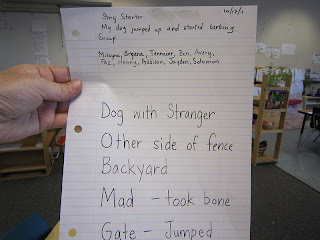 Story Starter
10/17/11
My dog jumped up and started barking.
Group
Milayna, Bryana, Terrever, Ben, Avery,
Paz, Henry, Addison, Jayden, Solomon
Dog with Stranger
Other side of fence
Backyard
Mad - took bone
Gate - Jumped